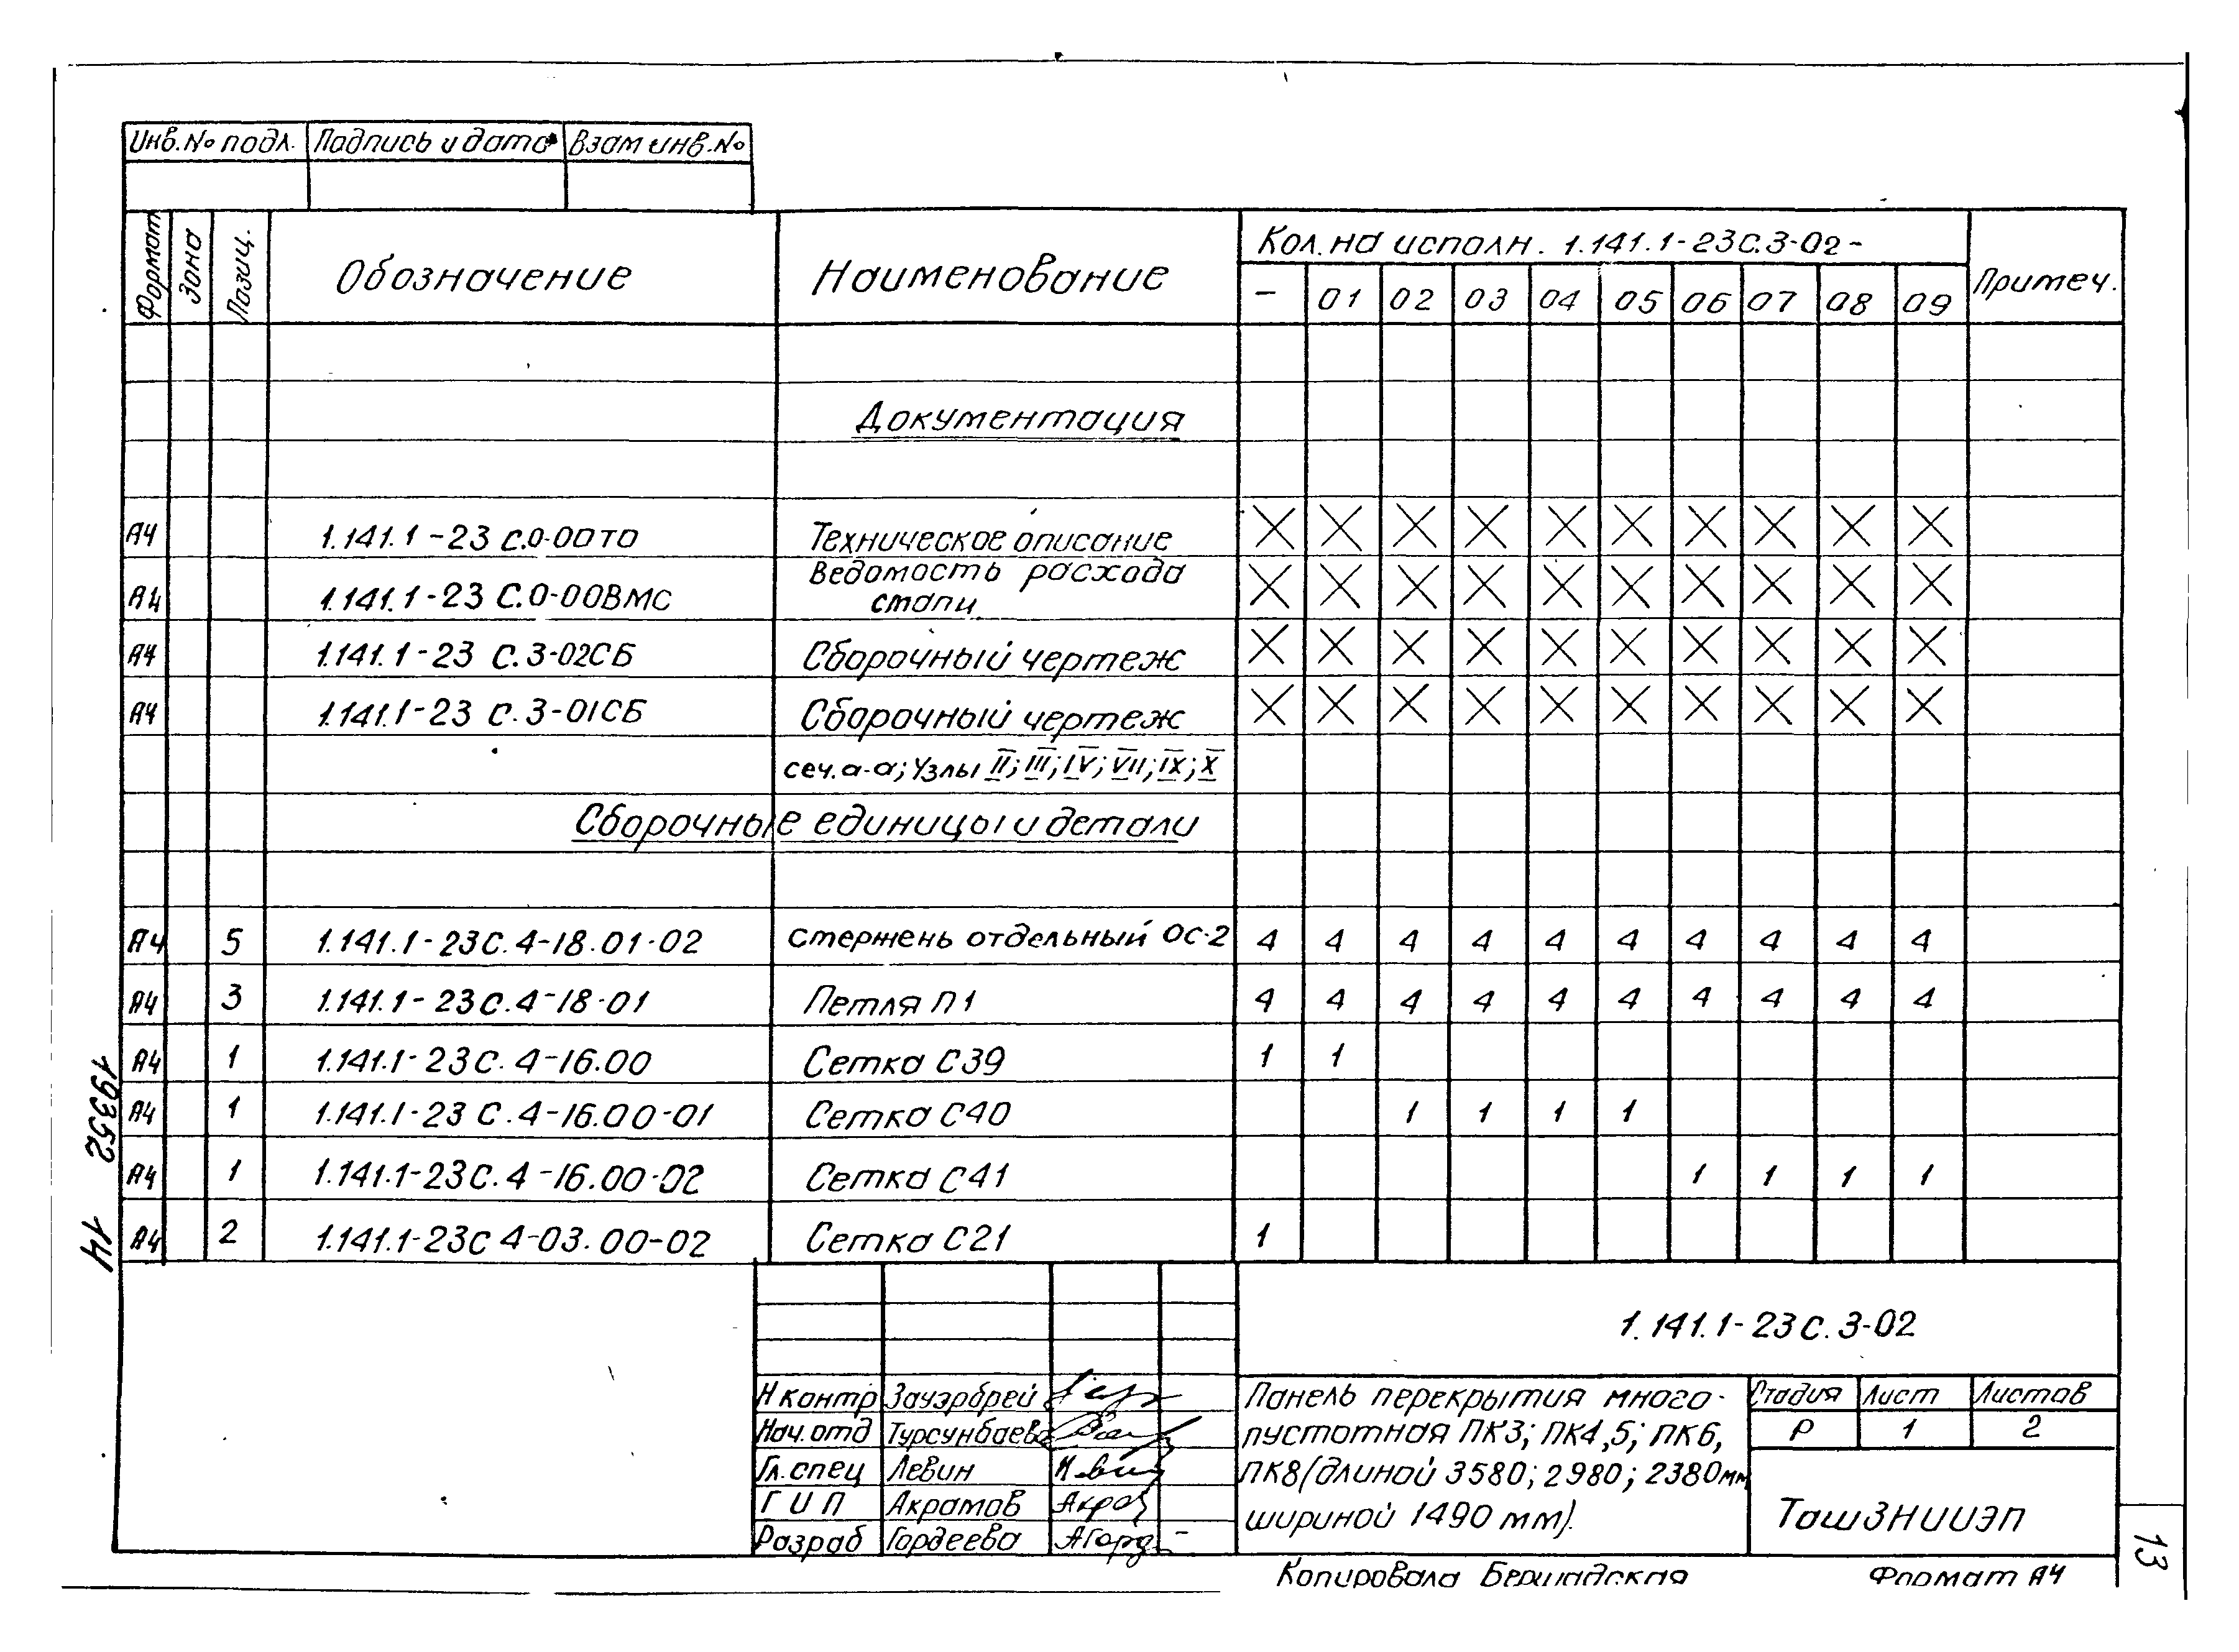 Инв.№ подл. Подпись и дата Взам инв.№
Формат Зона Позиц. Обозначение Наименование Кол. на исполн. 1.141.1-23С.3-02- Примеч.
- 01 02 03 04 05 06 07 08 09
Документация
А4 1.141.1-23 С.0-00ТО Техническое описание X X X X X X X X X X
Ведомость расхода
А4 1.141.1-23 С.0-00ВМС стали X X X X X X X X X X
А4 1.141.1-23 С.3-02СБ Сборочный чертеж X X X X X X X X X X
А4 1.141.1-23 С.3-01СБ Сборочный чертеж X X X X X X X X X X
сеч. а-а; Узлы II; III; IV; VII; IX; X
Сборочные единицы и детали
А4 5 1.141.1-23С.4-18.01-02 Стержень отдельный ОС-2 4 4 4 4 4 4 4 4 4 4
А4 3 1.141.1-23С.4-18-01 Петля П1 4 4 4 4 4 4 4 4 4 4
А4 1 1.141.1-23С.4-16.00 Сетка С39 1 1
А4 1 1.141.1-23 С.4-16.00-01 Сетка С40 1 1 1 1
А4 1 1.141.1-23С.4-16.00-02 Сетка С41 1 1 1 1
А4 2 1.141.1-23С 4-03.00-02 Сетка С21 1
19352 14
1.141.1-23С.3-02
Н контр Зауэрбрей
Нач.отд Турсунбаева
Гл.спец Левин
ГИП Акрамов
Разраб Гордеева
Панель перекрытия много-
пустотная ПК3; ПК4,5; ПК6,
ПК8(длиной 3580; 2980; 2380мм
шириной 1490 мм).
Стадия Лист Листов
Р 1 2
ТашЗНИИЭП
Копировала Бершадская Формат А4
13